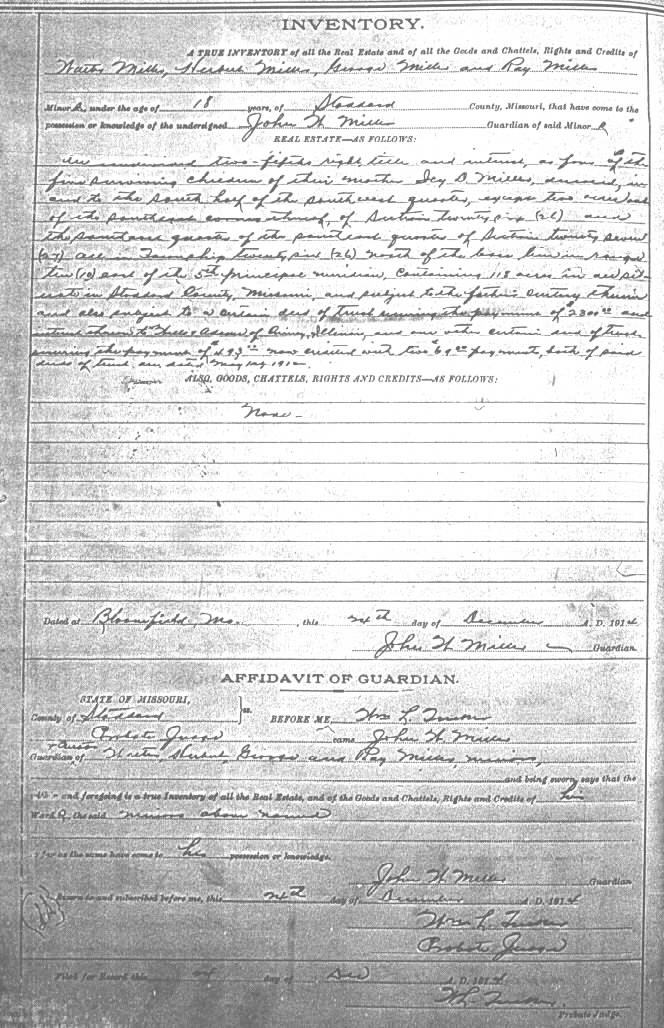 INVENTORY.
A TRUE INVENTORY of all the Real Estate and of all the Goods and Chattels, Rights and Credits of
Walter Miller, Herbert Miller, George Miller and Ray Miller
Minor s under the age of 18 years, of Stoddard County, Missouri, that have come to the
possession or knowledge of the undersigned John H Miller Guardian of said Minor s
REAL ESTATE—AS FOLLOWS:
An undivided two-fifths right, title and interest, as four of the
five surviving children of their mother Icy D Miller, deceased, in
and to the south half of the southwest quarter, except two acres
of the southeast corner thereof, of Section twenty six (26) and
the southeast quarter of the southeast quarter of Section twenty seven
(27) all in Township twenty six (26) north of the base line in range
ten (10) east of the 5th principal meridian, containing 118 acres in all
in Stoddard County, Missouri, and subject to the father's curtesy therein
and also subject to a certain deed of trust securing the payment of $2300.00 and
interest thereon to of Illinois, one other certain deed of trust
securing the payment of now credited with two payments, both of said
deeds of trust are dated May 1st 191
ALSO, GOODS, CHATTELS, RIGHTS AND CREDITS—AS FOLLOWS:
None
Dated at Bloomfield, Mo. , this 24th day of December A. D. 1914
John H Miller Guardian
AFFIDAVIT OF GUARDIAN.
STATE OF MISSOURI, } ss.
County of Stoddard BEFORE ME, Wm L. Tucker
Probate Judge came John H Miller
Guardian of Walter, Herbert, George and Ray Miller, minors,
and being sworn, says that the
and foregoing is a true Inventory of all the Real Estate, and of the Goods and Chattels, Rights and Credits of his
Ward s, the said minors above named
far as the same have come to his possession or knowledge.
John H Miller Guardian
Sworn to and subscribed before me, this 24th day of December A. D. 1914
Wm L. Tucker
Probate Judge
Filed for Record this 24 day of Dec A. D. 1914
W L. Tucker.
Probate Judge.